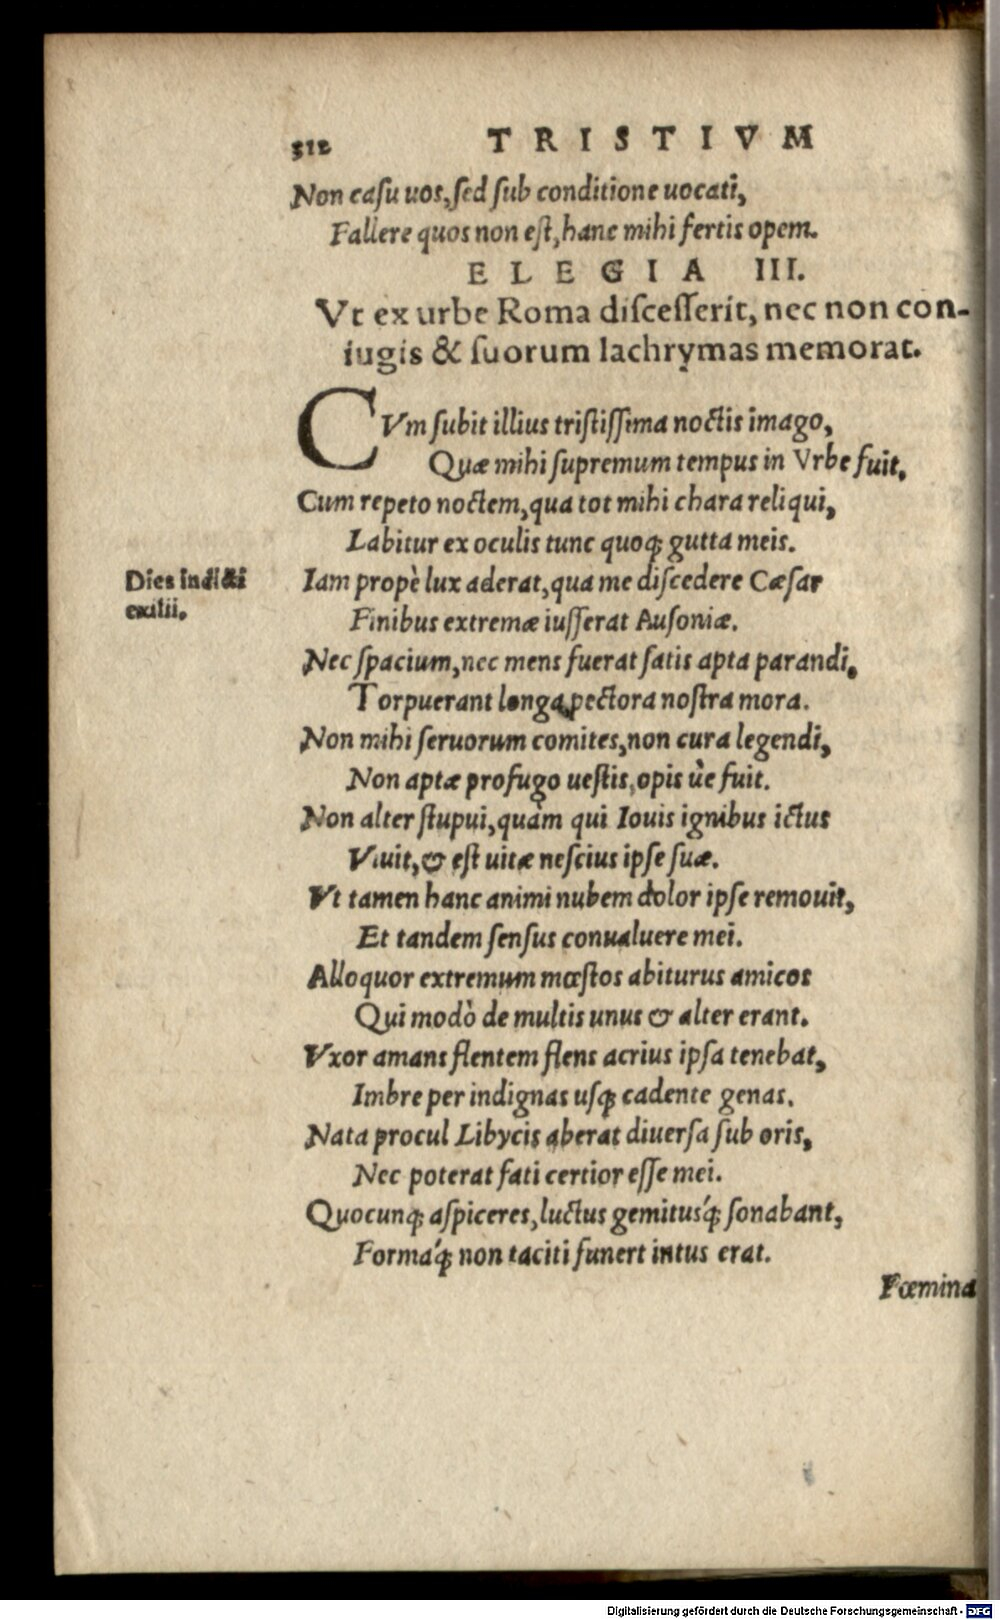 312 TRISTIVM
Non caſu uos, ſed ſub conditione uocati,
Fallere quos non eſt, hanc mihi fertis opem.
ELEGIA III.
Vt ex urbe Roma diſceſſerit, nec non con-
iugis & ſuorum lachrymas memorat.
CVm ſubit illius triſtiſſima noctis imago,
Quæ mihi ſupremum tempus in Vrbe fuit,
Cum repeto noctem, qua tot mihi chara reliqui,
Labitur ex oculis tunc quoq; gutta meis.
Dies indicti
exilii.
Iam propè lux aderat, qua me diſcedere Cæſar
Finibus extremæ iuſſerat Auſoniæ.
Nec ſpacium, nec mens fuerat ſatis apta parandi,
Torpuerant longa pectora noſtra mora.
Non mihi ſeruorum comites, non cura legendi,
Non aptæ profugo ueſtis, opis ùe fuit.
Non alter ſtupui, quàm qui Iouis ignibus ictus
Viuit, & eſt uitæ neſcius ipſe ſuæ.
Vt tamen hanc animi nubem dolor ipſe remouit,
Et tandem ſenſus conualuere mei.
Alloquor extremum mœſtos abiturus amicos
Qui modò de multis unus & alter erant.
Vxor amans flentem flens acrius ipſa tenebat,
Imbre per indignas uſq; cadente genas.
Nata procul Libycis aberat diuerſa ſub oris,
Nec poterat fati certior eſſe mei.
Quocunq; aſpiceres, luctus gemitusq́; ſonabant,
Formaq́; non taciti funert intus erat.
Fœmina
Digitalisierung gefördert durch die Deutsche Forschungsgemeinschaft - DFG